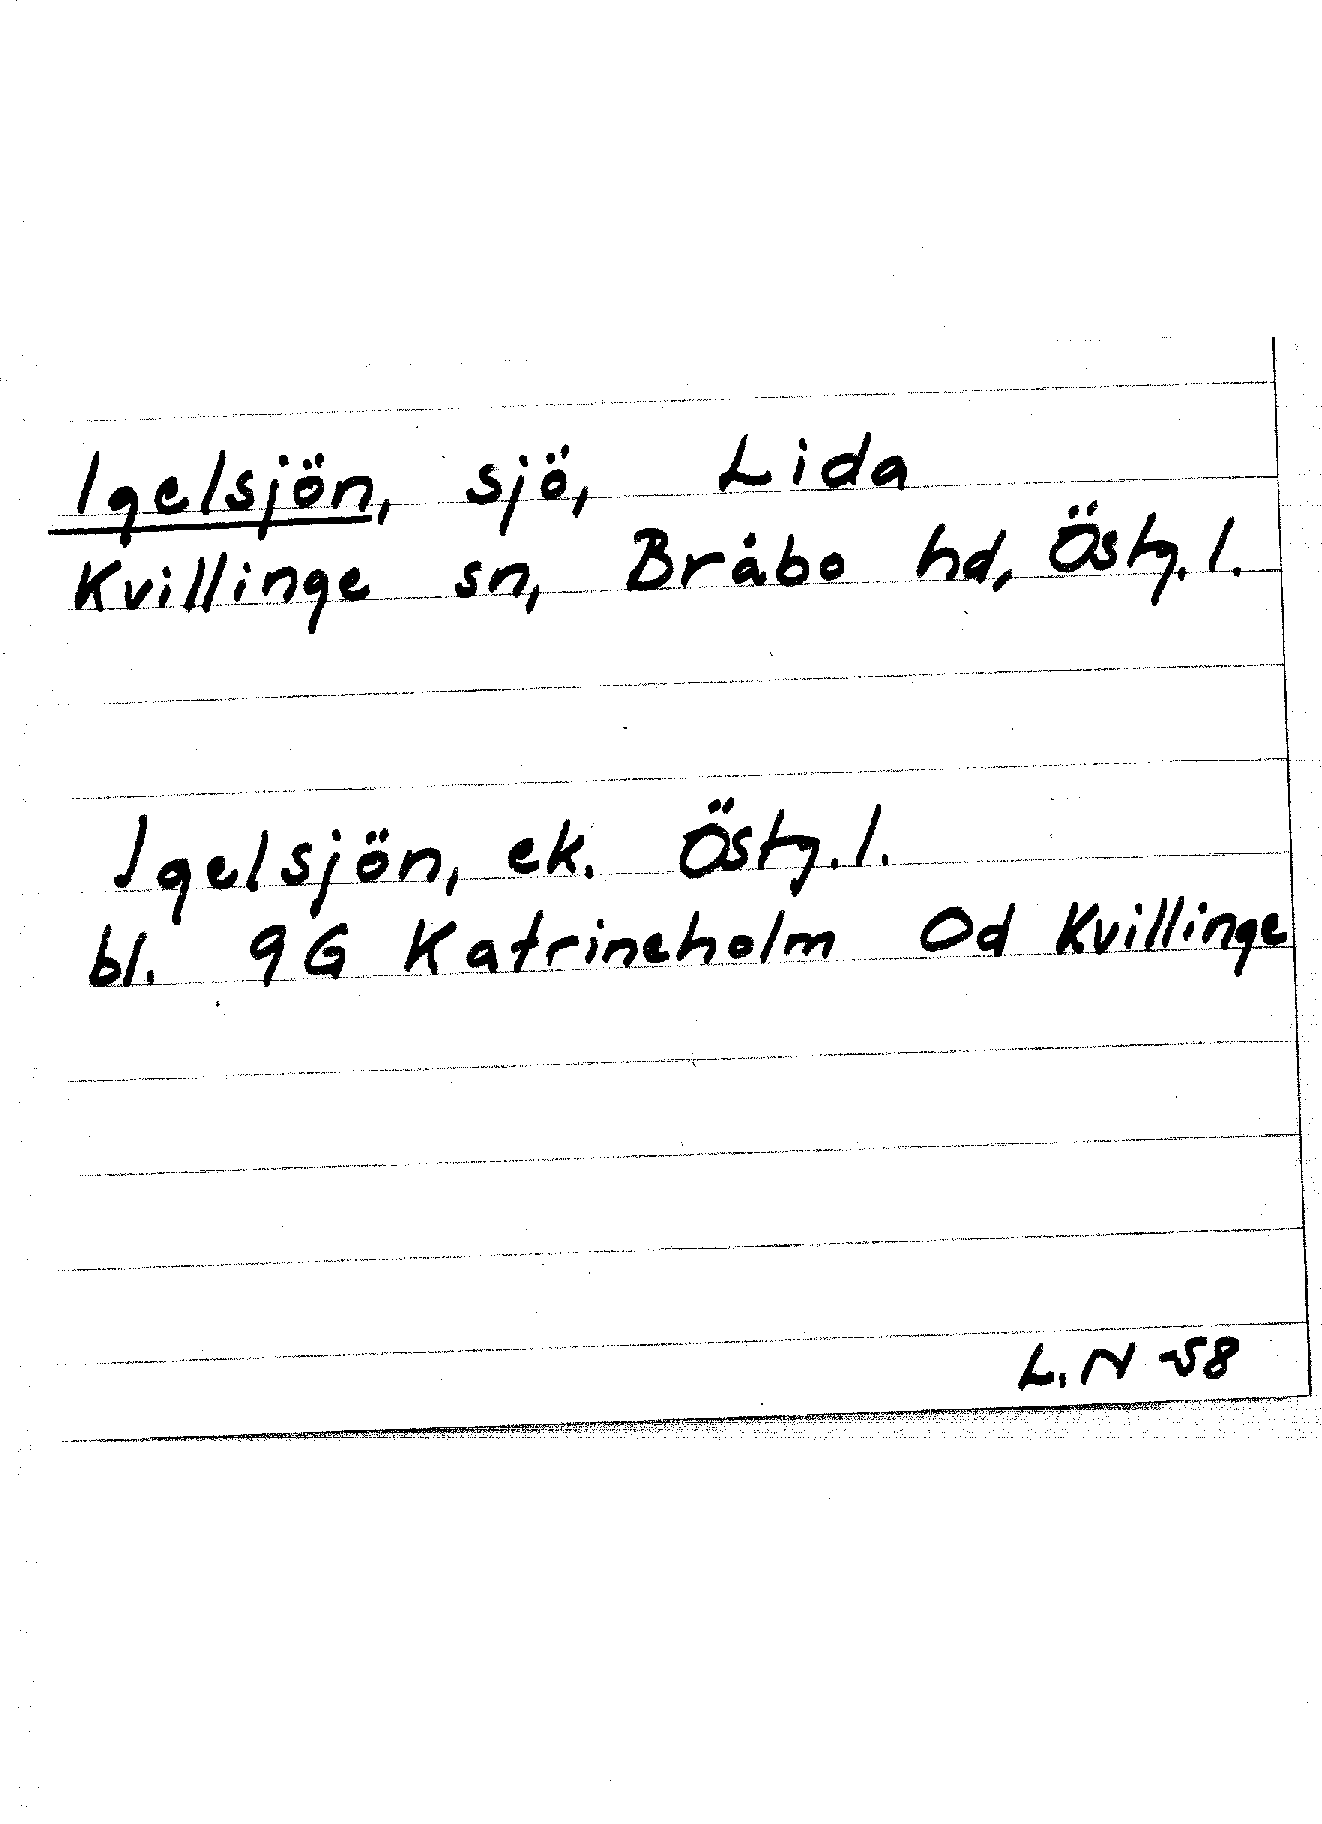 Igelsjön, sjö, Lida
Kvillinge sn, Bråbo hd, Östg. l.
Igelsjön, ek. Östg. l.
bl. 9G Katrineholm Od Kvillinge
L. N -58